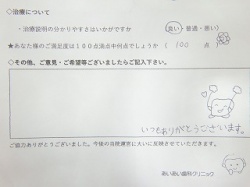 ◇治療について
・治療説明の分かりやすさはいかがですか （良い・普通・悪い）
★あなた様のご満足度は１００点満点中何点でしょうか （ 100 点）
◇その他、ご意見・ご希望等ございましたらご記入下さい。
いつもありがとうございます。
ご協力ありがとうございました。今後の当院運営に大いに反映させていただきます。
あいあい歯科クリニック